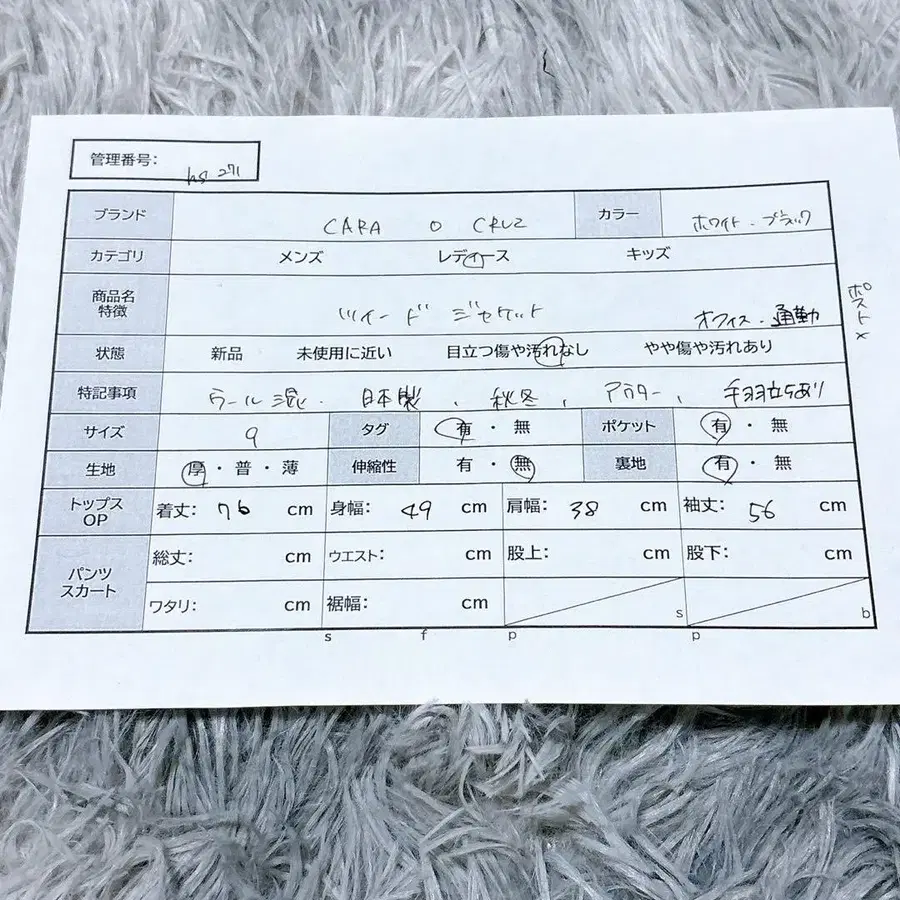 管理番号: hs 271
ブランド CARA O CRUZ カラー ホワイト・ブラック
カテゴリ メンズ レディース キッズ
商品名 特徴 ツイード ジャケット オフィス・通勤
ポスト×
状態 新品 未使用に近い 目立つ傷や汚れなし やや傷や汚れあり
特記事項 ウール混、日本製、秋冬、アウター、毛羽立ちあり
サイズ 9 タグ 有・無 ポケット 有・無
生地 厚・普・薄 伸縮性 有・無 裏地 有・無
トップス OP 着丈: 76 cm 身幅: 49 cm 肩幅: 38 cm 袖丈: 56 cm
パンツ スカート 総丈: cm ウエスト: cm 股上: cm 股下: cm
ワタリ: cm 裾幅: cm s b
s f p p